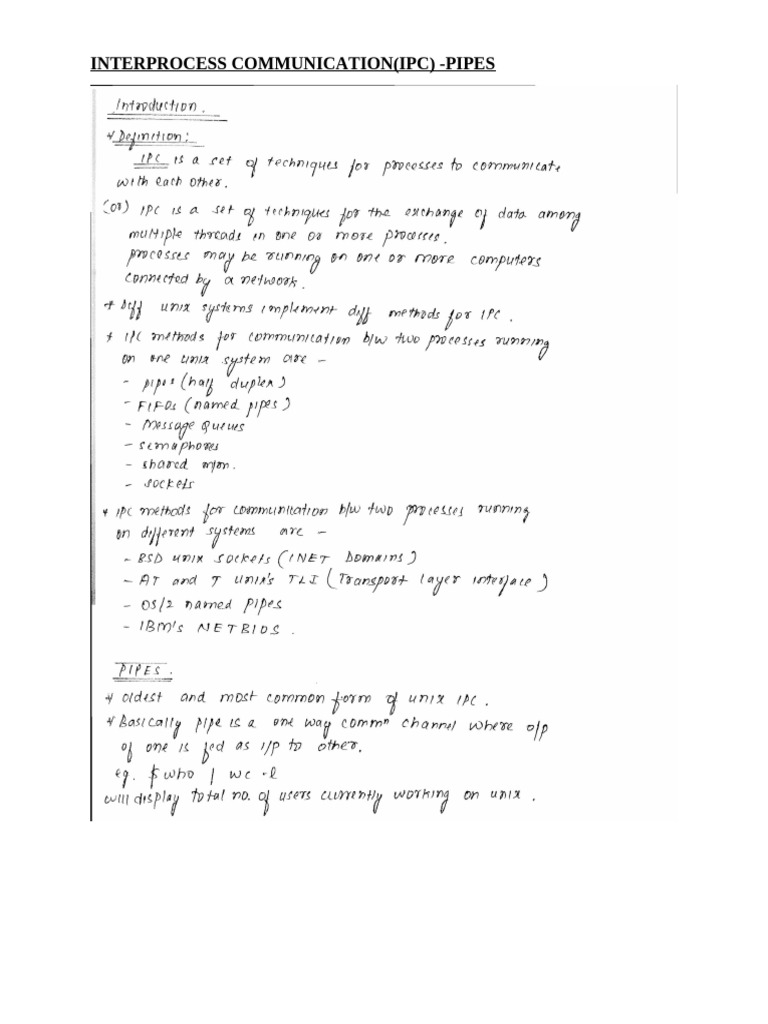 INTERPROCESS COMMUNICATION(IPC) -PIPES
Introduction.
* Definition:
IPC is a set of techniques for processes to communicate
with each other.
(or) IPC is a set of techniques for the exchange of data among
multiple threads in one or more processes.
processes may be running on one or more computers
connected by a network.
* Diff unix systems implement diff methods for IPC.
* IPC methods for communication b/w two processes running
on one unix system are -
- pipes (half duplex)
- FIFOs (named pipes)
- Message Queues
- semaphores
- shared m/m.
- sockets
* IPC methods for communication b/w two processes running
on different systems are -
- BSD unix sockets (INET Domains)
- AT and T unix's TLI (Transport layer interface)
- OS/2 named pipes
- IBM's NETBIOS.
PIPES.
* oldest and most common form of unix IPC.
* Basically pipe is a one way commn channel where o/p
of one is fed as i/p to other.
eg. $ who | wc -l
will display total no. of users currently working on unix.